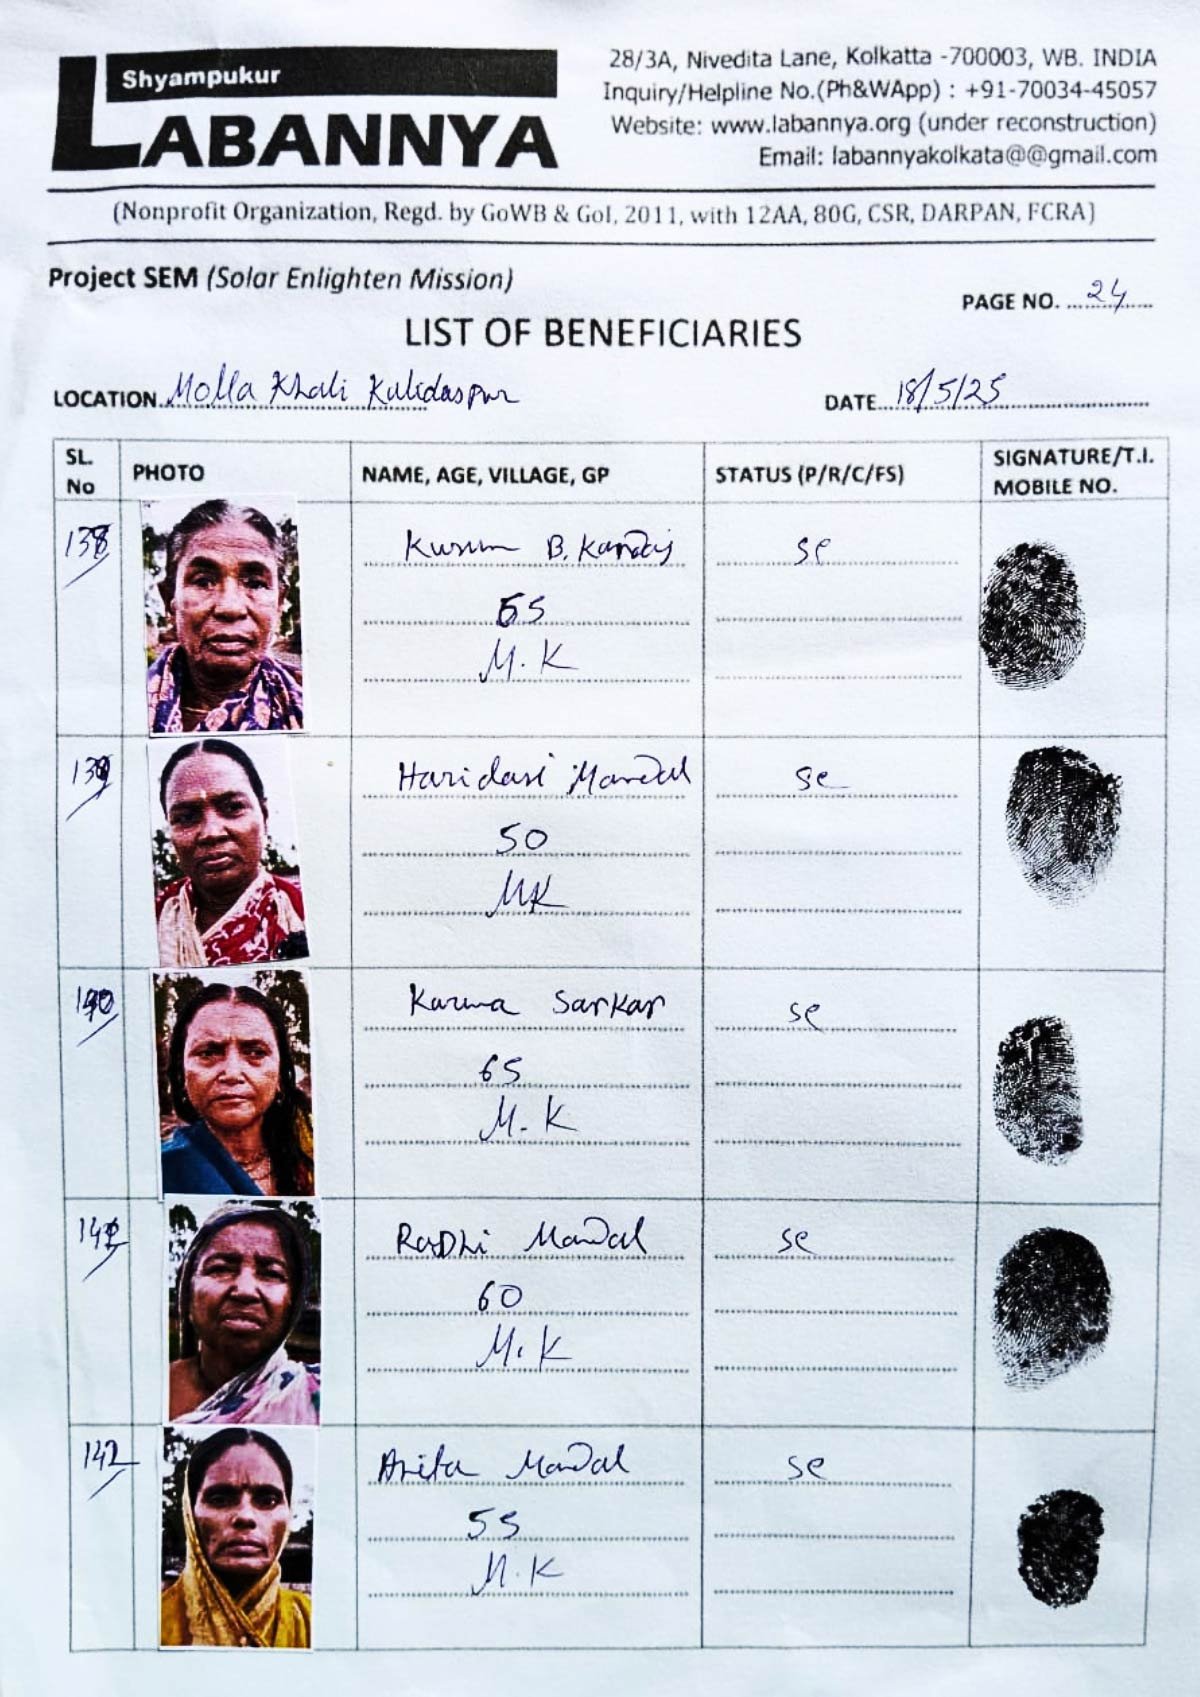 Shyampukur
LABANNYA
28/3A, Nivedita Lane, Kolkatta -700003, WB. INDIA
Inquiry/Helpline No.(Ph&WApp) : +91-70034-45057
Website: www.labannya.org (under reconstruction)
Email: labannyakolkata@@gmail.com
(Nonprofit Organization, Regd. by GoWB & GoI, 2011, with 12AA, 80G, CSR, DARPAN, FCRA)
Project SEM (Solar Enlighten Mission)
PAGE NO. 24
LIST OF BENEFICIARIES
LOCATION Molla Khali Kalidaspur
DATE 18/5/25
SL. No PHOTO NAME, AGE, VILLAGE, GP STATUS (P/R/C/FS) SIGNATURE/T.I. MOBILE NO.
138 Kusum B. se
55
M. K
139 Haridasi Mandal se
50
MK
140 Karuna Sarkar se
65
M. K
141 Radhi Mandal se
60
M. K
142 Anita Mandal se
55
M. K